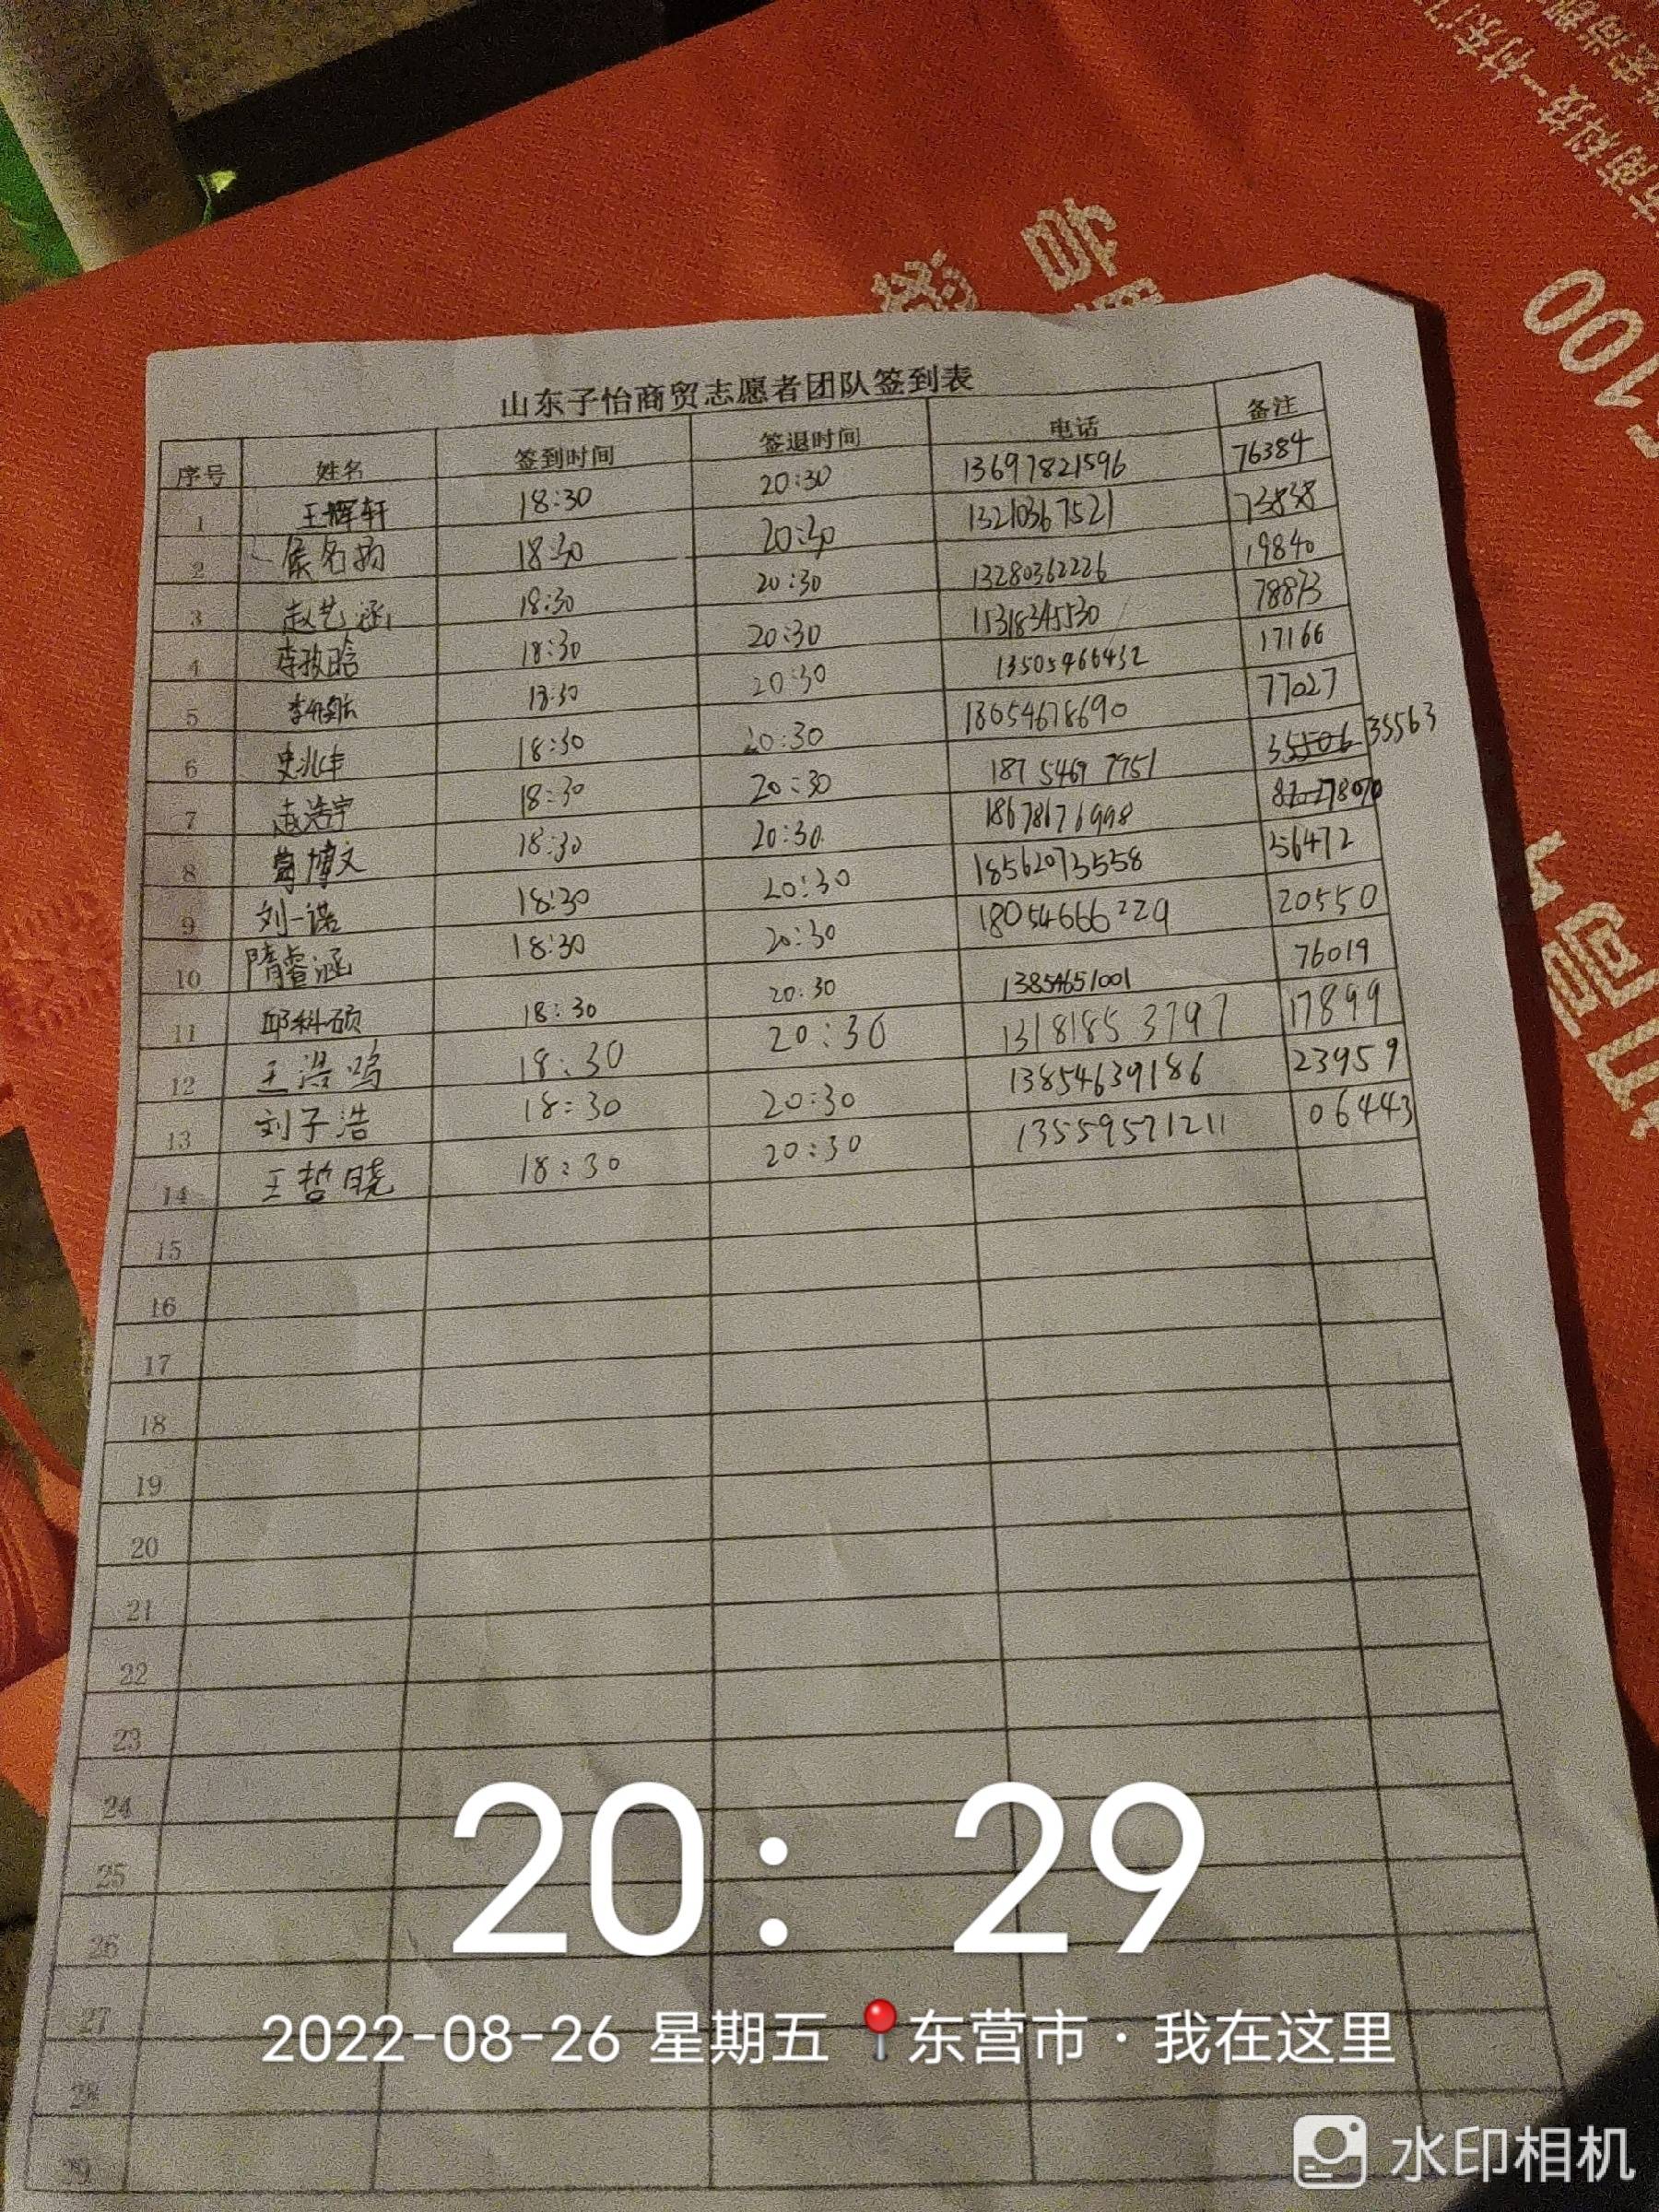 南科技
100
山东子怡商贸志愿者团队签到表
序号 姓名 签到时间 签退时间 电话 备注
1 王辉轩 18:30 20:30 13697821596 76384
2 侯名 18:30 20:30 13210367521 73838
3 赵艺涵 18:30 20:30 13280362226 19840
4 李玫晗 18:30 20:30 15318345530 78873
5 李 18:30 20:30 13505466432 17166
6 史兆丰 18:30 20:30 18054678690 77027
7 赵浩宇 18:30 20:30 187 5469 7751 35506 35563
8 博文 18:30 20:30 18678676998 78070
9 刘一诺 18:30 20:30 18562073558 56472
10 隋睿涵 18:30 20:30 18054666229 20550
11 邱科硕 18:30 20:30 13854651001 76019
12 王浩鸣 18:30 20:30 1318185 3797 17899
13 刘子浩 18:30 20:30 13854639186 23959
14 王哲晓 18:30 20:30 13559571211 06443
15
16
17
18
19
20
21
22
23
24
25
26
27
28
29
20: 29
2022-08-26 星期五 东营市·我在这里
水印相机